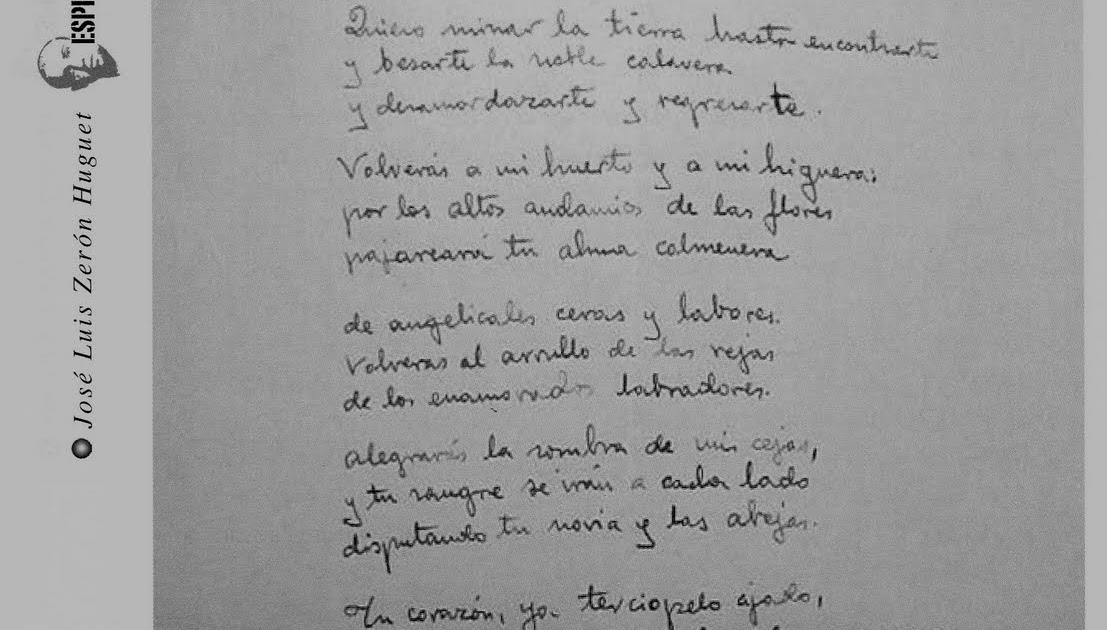 ESPI
José Luis Zerón Huguet
Quiero minar la tierra hasta encontrarte
y besarte la noble calavera
y desamordazarte y regresarte.
Volverás a mi huerto y a mi higuera:
por los altos andamios de las flores
pajareará tu alma colmenera
de angelicales ceras y labores.
Volverás al arrullo de las rejas
de los enamorados labradores.
Alegrarás la sombra de mis cejas,
y tu sangre se irán a cada lado
disputando tu novia y las abejas.
Tu corazón, ya terciopelo ajado,